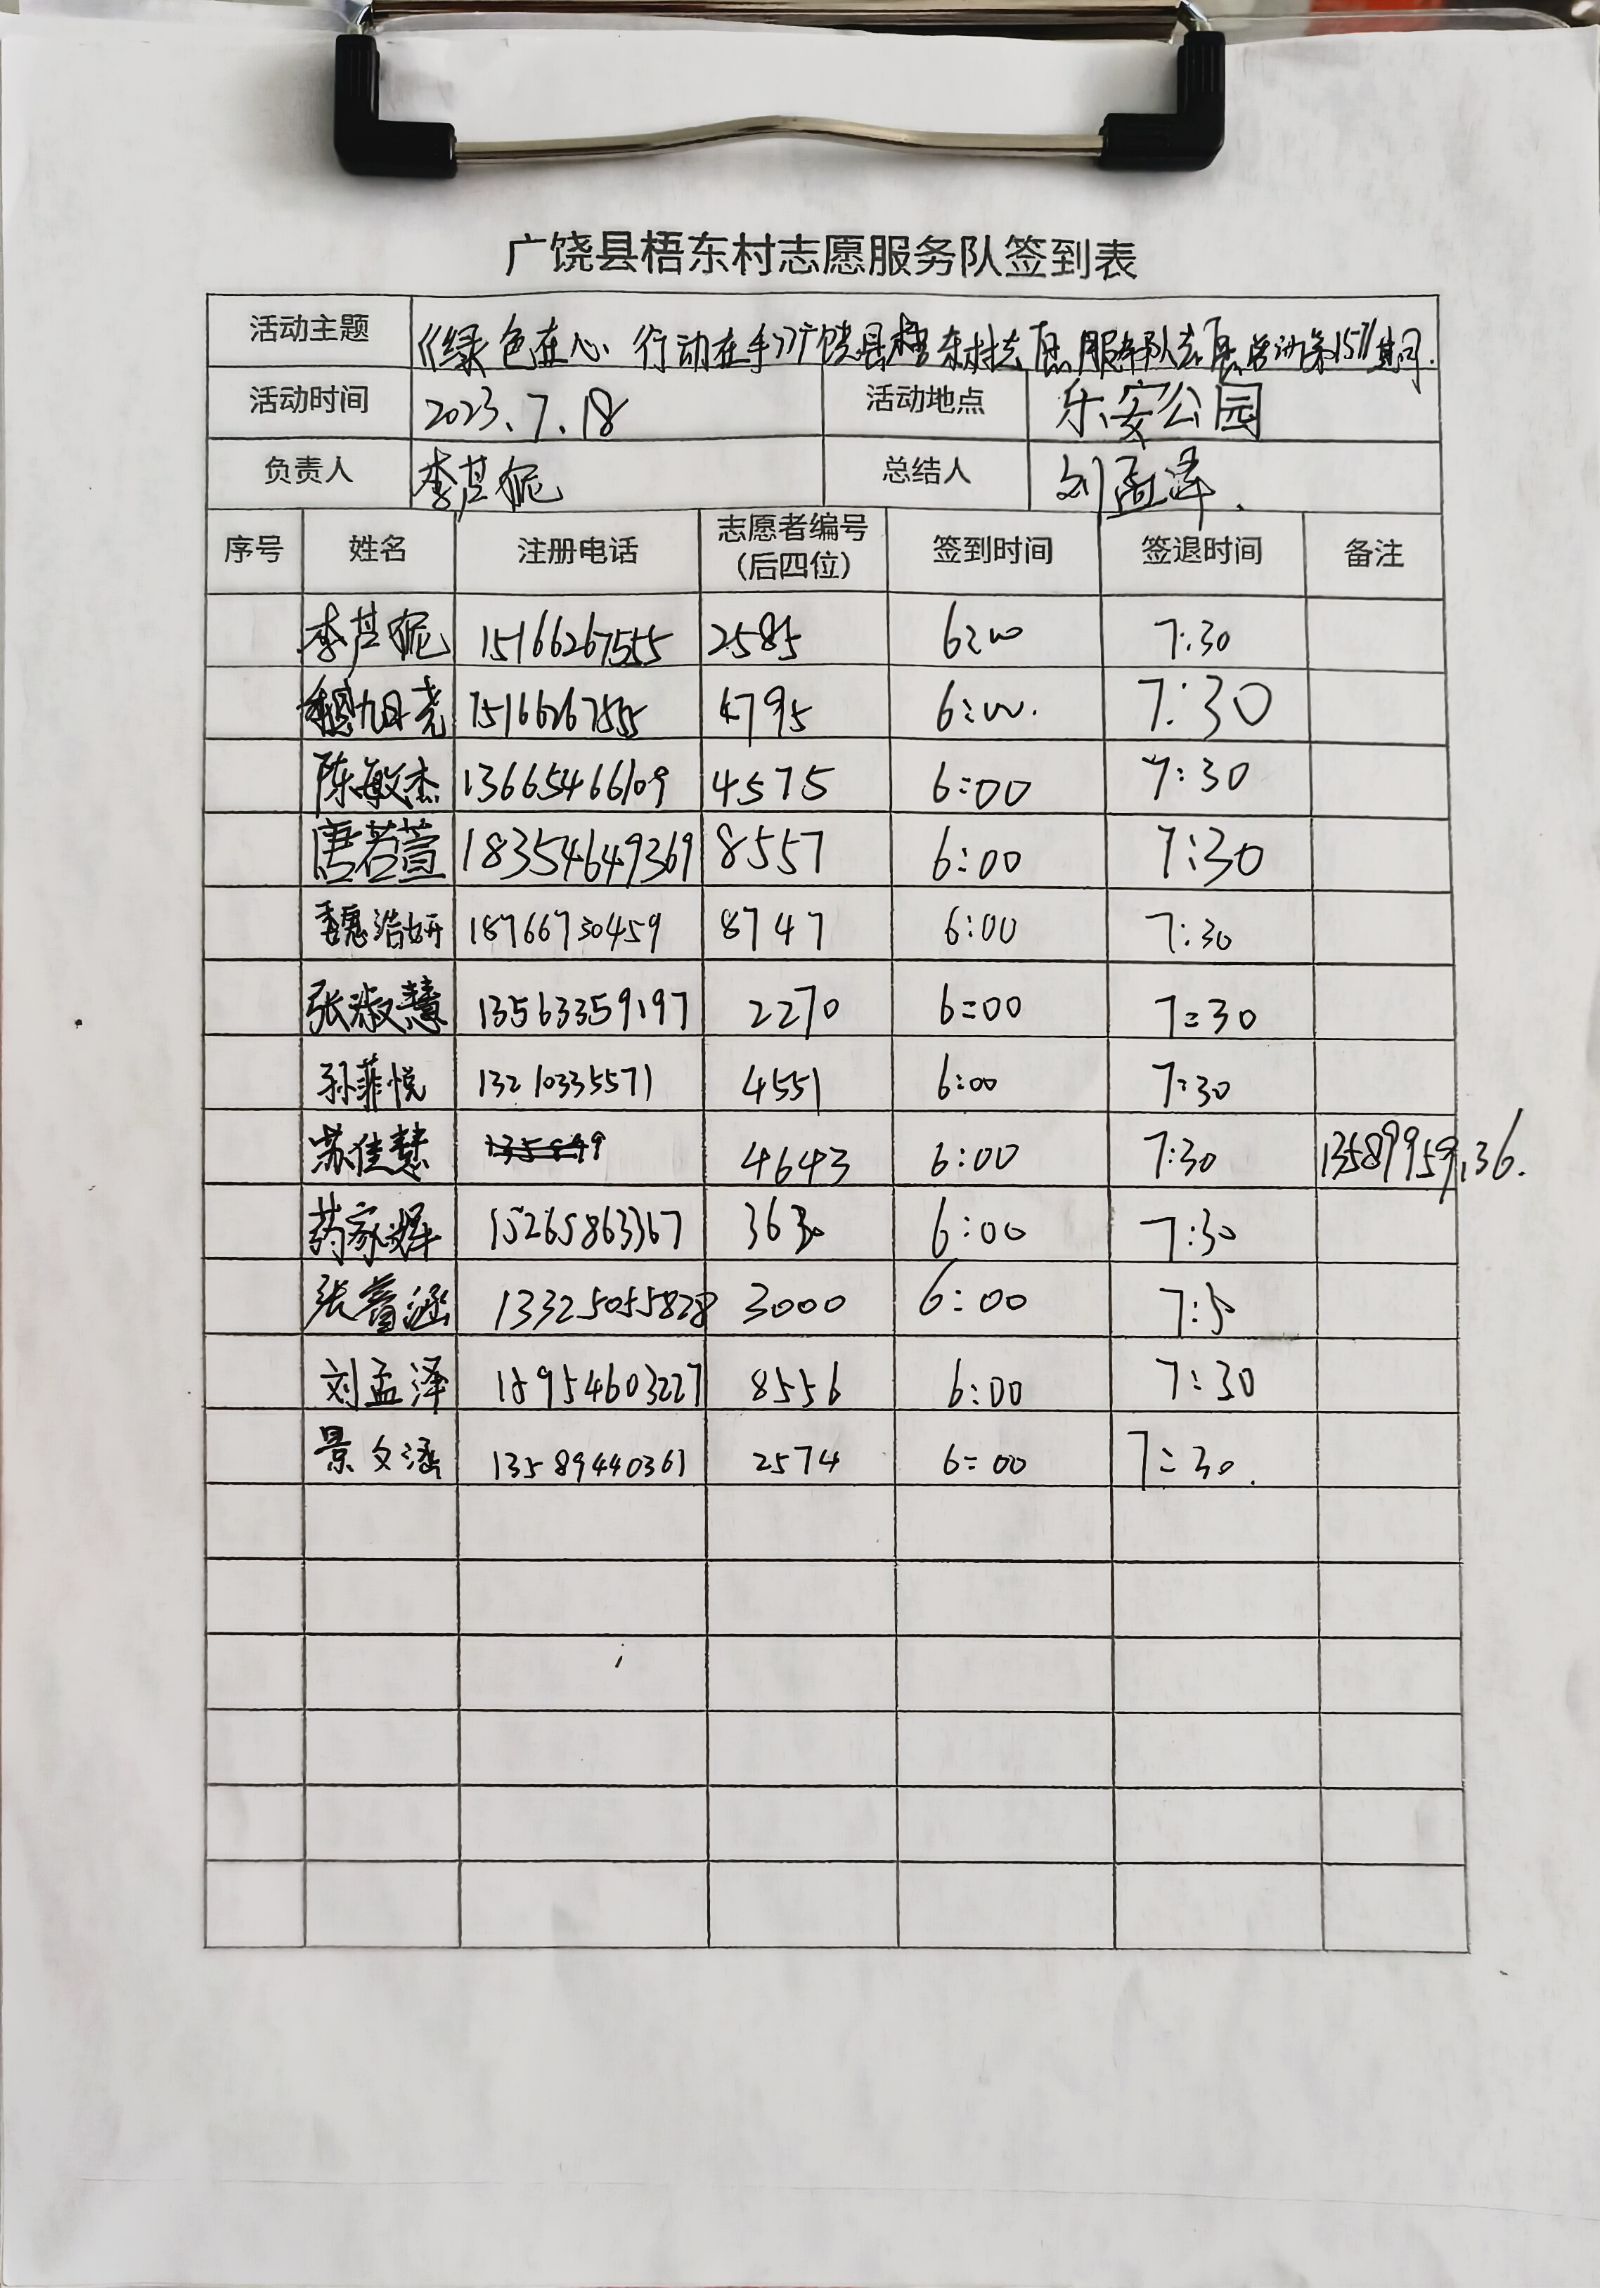 广饶县梧东村志愿服务队签到表
活动主题 《绿色在心 行动在手》广饶县梧东村志愿服务队志愿活动第1571期
活动时间 2023.7.18 活动地点 乐安公园
负责人 李芑妮 总结人 刘孟泽.
序号 姓名 注册电话 志愿者编号 (后四位) 签到时间 签退时间 备注
李芑妮 15166267555 2585 6:00 7:30
魏旭尧 15166267555 4795 6:00. 7:30
陈敏杰 13665466109 4575 6:00 7:30
唐若萱 18354649369 8557 6:00 7:30
魏浩妍 18766730459 8747 6:00 7:30
张淑慧 13563359197 2270 6:00 7:30
孙菲悦 13210335571 4551 6:00 7:30
苏佳慧 4643 6:00 7:30 13589959136.
药家 15265863367 3630 6:00 7:30
张蕾涵 13325055828 3000 6:00
刘孟泽 18954603227 8556 6:00 7:30
景文涵 13589440361 2574 6:00 7:30.